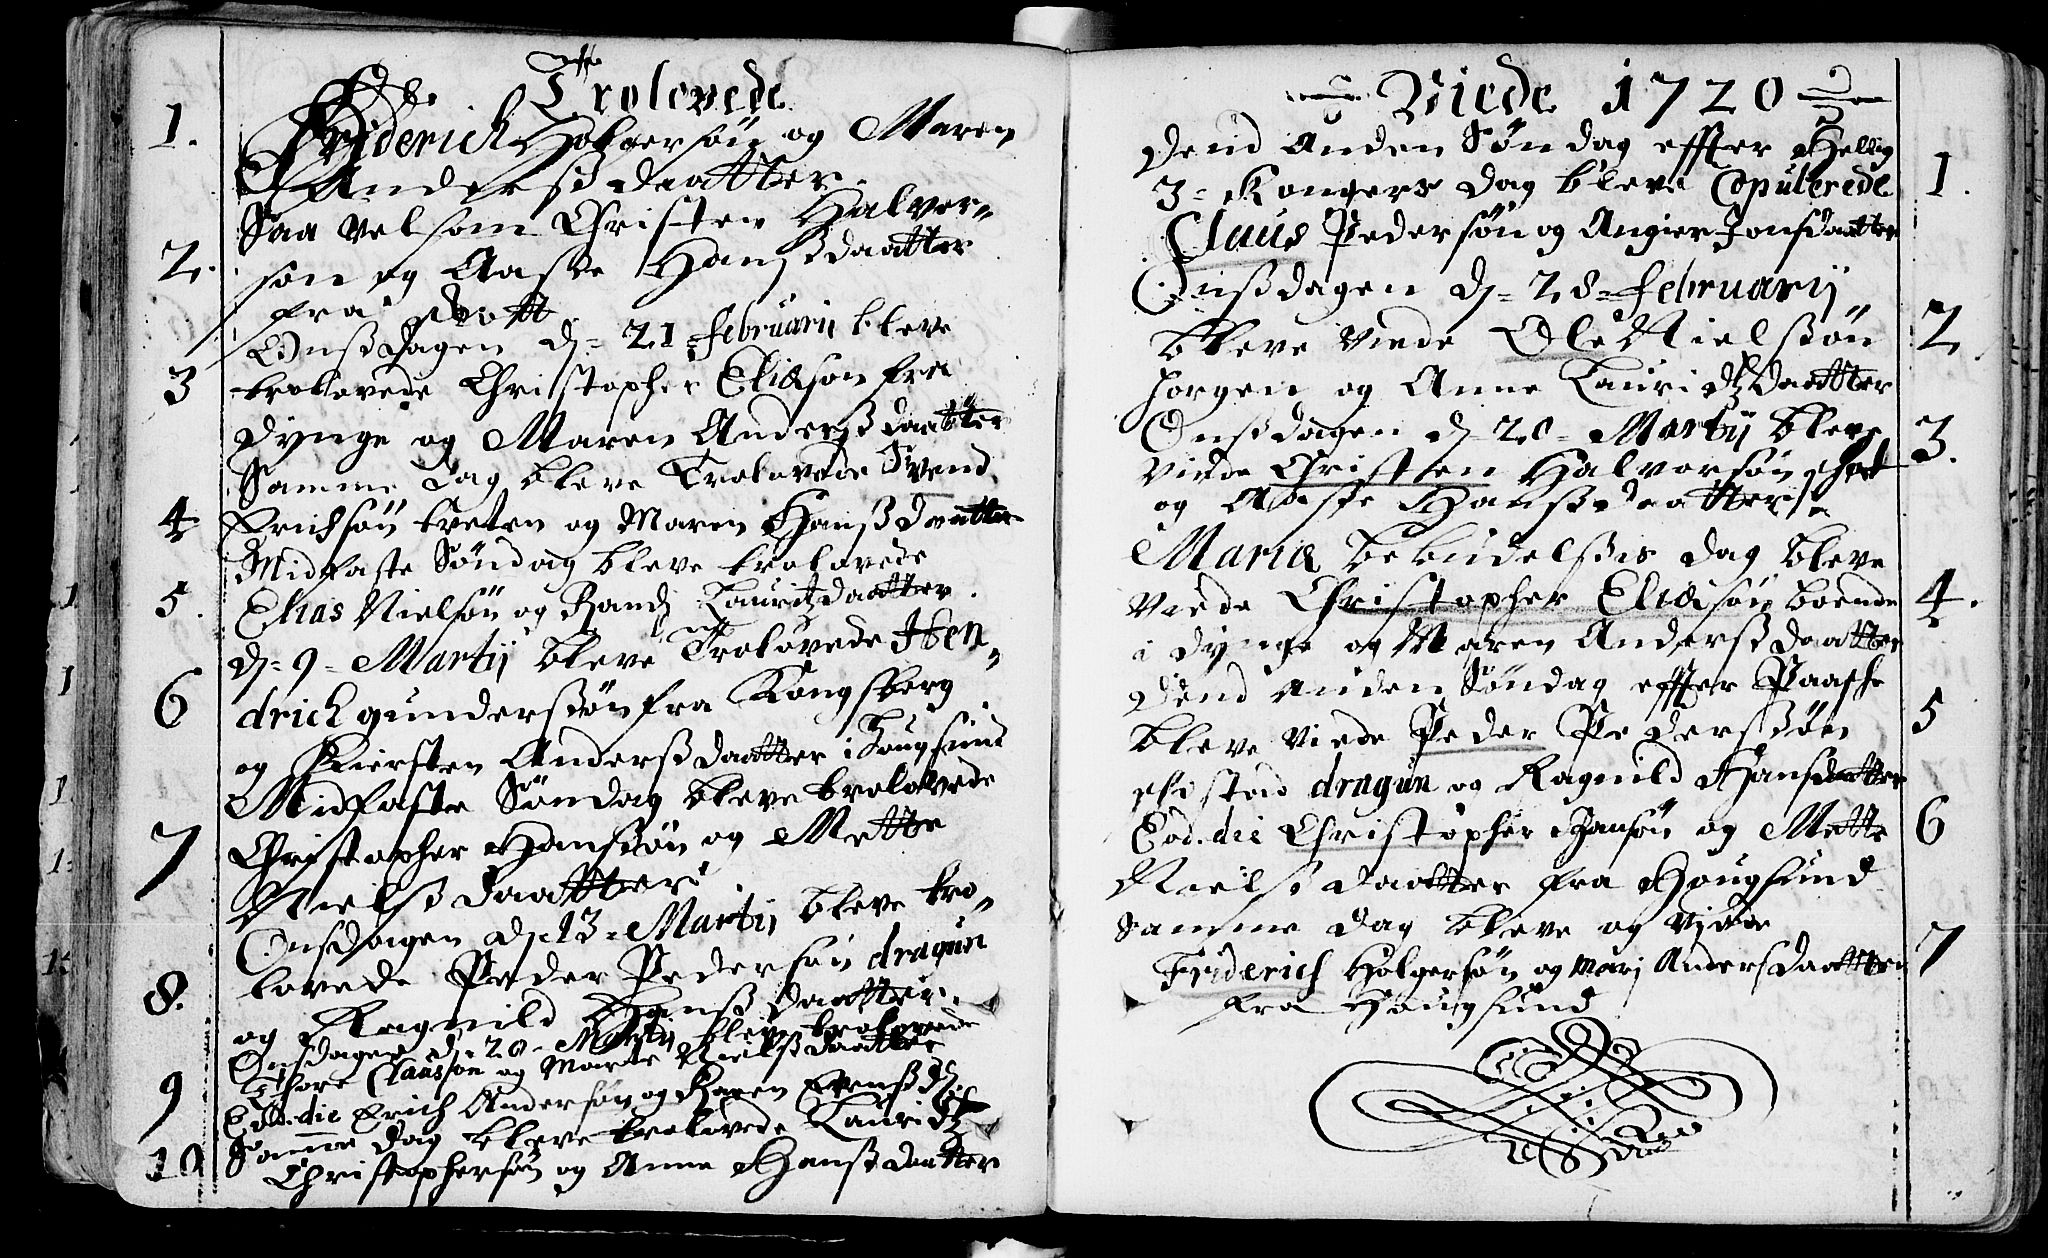 De Trolovede
1. Friderich Holgersøn og Maren
Anderssdaatter
Saa velsom Christen Halver-
2. søn og Aaste Hanssdaatter
fra
Onssdagen d. 21 februarii bleve
3 trolovede Christopher Eliæsøn fra
Dynge og Maren Anderssdaatter
Samme Dag bleve Trolovede Svend
4 Erichsøn tveten og Maren Hanssdaatter
Midfaste Søndag bleve trolovede
5. Elias Nielsøn og Randj Lauritzdaatter.
d. 9 Martij bleve Trolovede Hen-
6 drich gunderssøn fra Kongsberg
og Kiersten Anderssdaatter i Hougsund
Midfaste Søndag bleve trolovede
7 Christopher Hanssøn og Mette
Nielssdaatter
Onsdagen d. 13 Martij bleve tro-
lovede Peder Pedersøn dragun
8. og Ragnild Hanssdaatter.
Onsdagen d. 20 Martij bleve trolovede
Thore Claussøn og Marte Nielssdaatter
9 Eod. die Erich Andersøn og Karen Svenssd.
Samme dag bleve trolovede Lauridtz
10 Christophersøn og Anne Hanssdaatter
Viede 1720
Dend Anden Søndag effter Hellig
3 Kongers dag bleve Copulerede 1.
Claus Pedersøn og Angier Jonsdaatter
Onssdagen d. 28 februarij
bleve viede Ole Nielssøn 2
horgen og Anne Lauridtzdaatter
Onssdagen d. 20 Martij bleve 3.
viede Christen Halvorsøn
og Aaste Hanssdaatter
Mariæ bebudelssis dag bleve
viede Christopher Eliæsøn boende 4.
i Dynge og Maren Anderssdaatter
Dend anden Søndag effter Paaske
bleve viede Peder Pederssøn 5
dragun og Ragnild Hansdaatter
Eod. die Christopher Hansøn og Mette 6
Niels daatter fra Hougsund
Samme dag bleve og viede
Friderich Holgersøn og Marj Andersdaatter 7
fra Hougsund